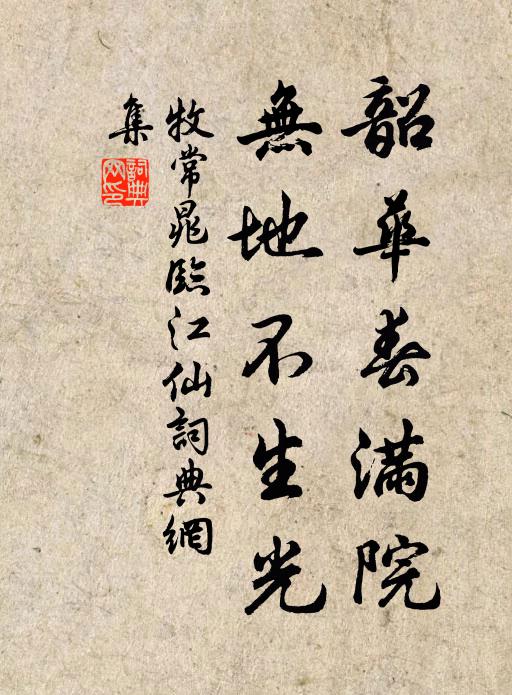 韶華春滿院
無地不生光
牧常晁臨江仙詞典網
集
詞典
网印